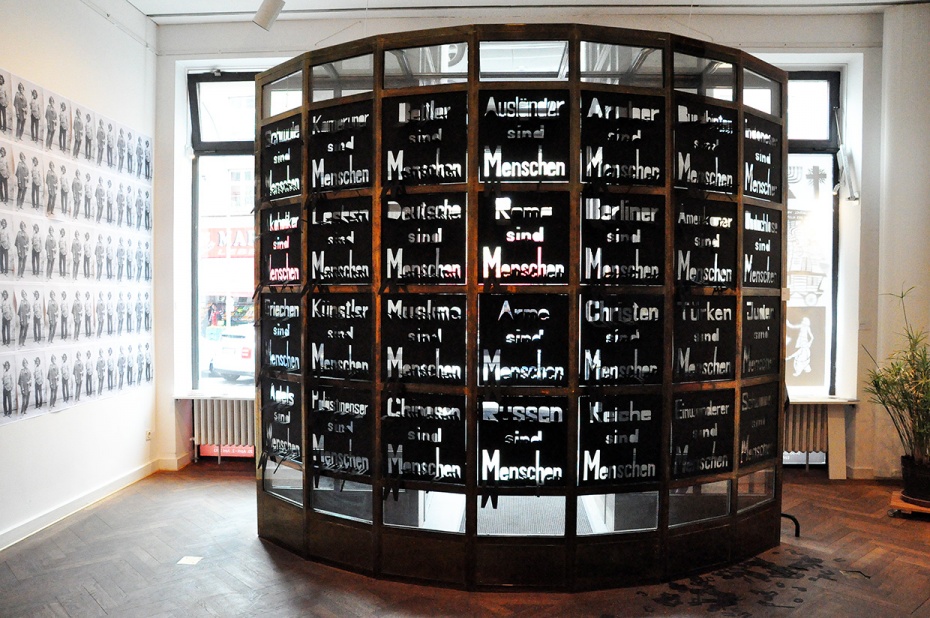 sind
Menschen
Kameruner
sind
Menschen
Bettler
sind
Menschen
Ausländer
sind
Menschen
sind
Menschen
sind
Menschen
sind
Menschen
sind
Menschen
Lesben
sind
Menschen
Deutsche
sind
Menschen
Roma
sind
Menschen
Berliner
sind
Menschen
Amerikaner
sind
Menschen
Obdachlose
sind
Menschen
Griechen
sind
Menschen
Künstler
sind
Menschen
Muslime
sind
Menschen
Arme
sind
Menschen
Christen
sind
Menschen
Türken
sind
Menschen
Juden
sind
Menschen
sind
Menschen
Palästinenser
sind
Menschen
Chinesen
sind
Menschen
Russen
sind
Menschen
Reiche
sind
Menschen
Einwanderer
sind
Menschen
sind
Menschen